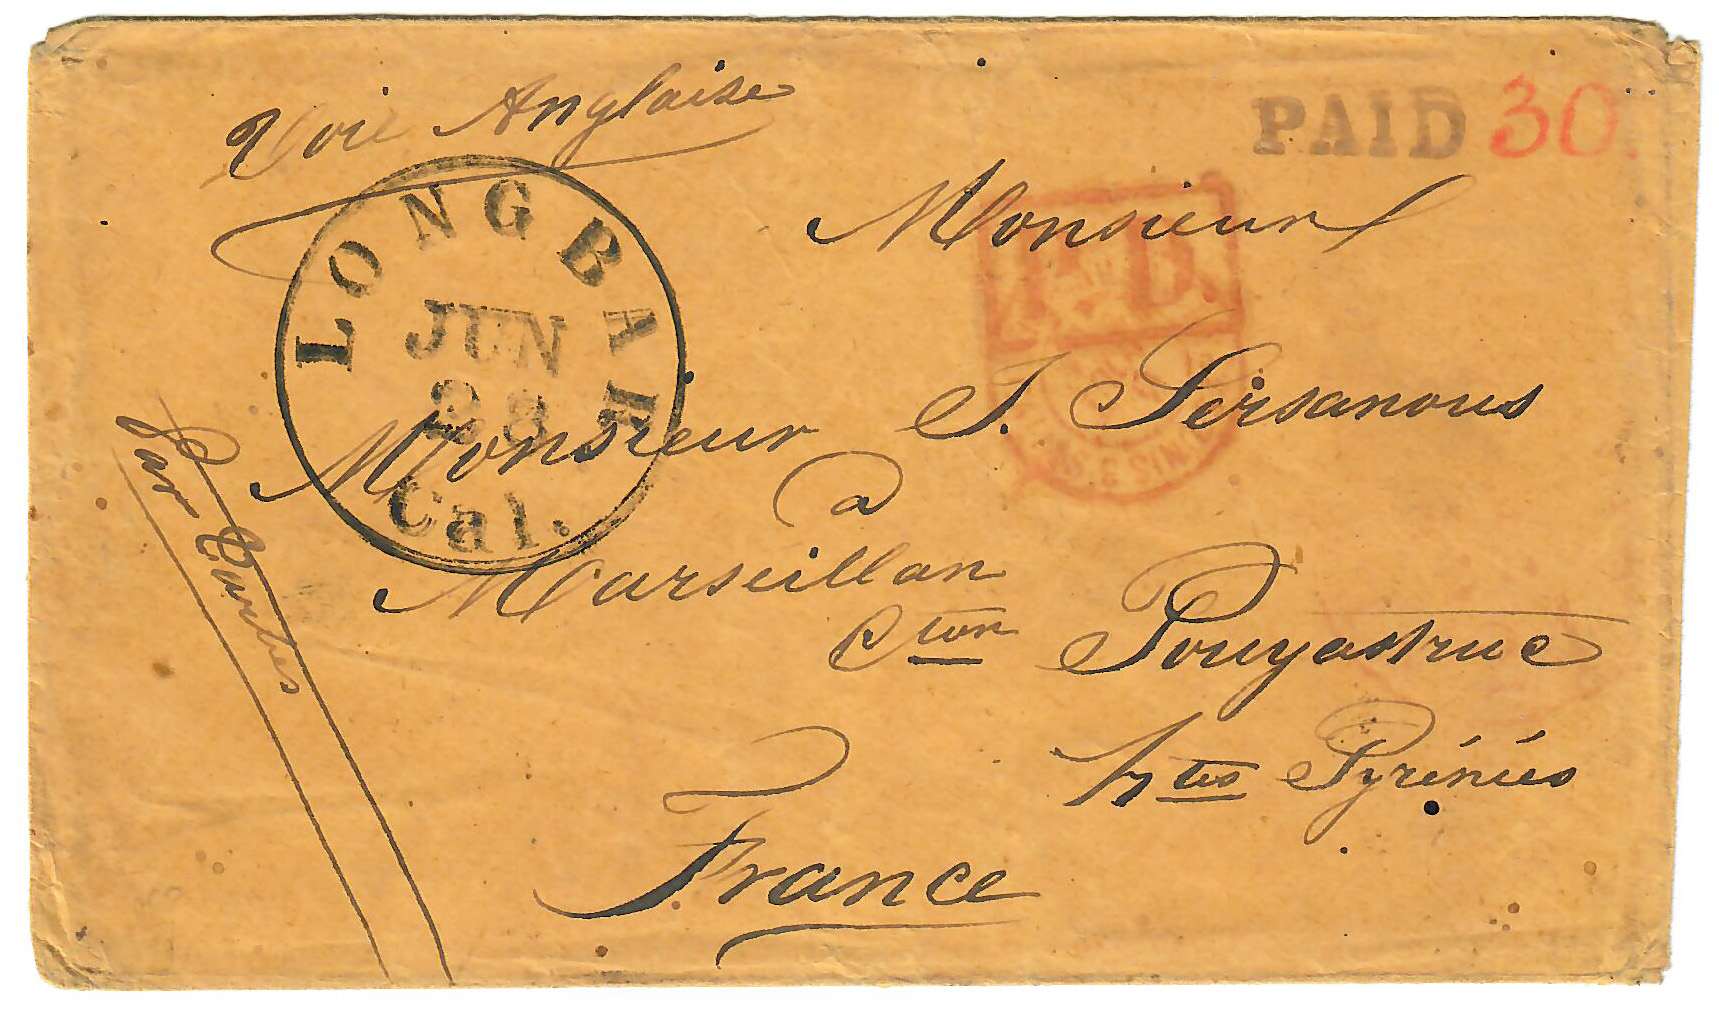 Voie Anglaise
PAID 30
LONG BAR
JUN
28
Cal.
P.D.
Monsieur
Monsieur J. Persanous
a
Marseillan
Cton Pouyastruc
Htes Pyrénées
France
Par Tarbes